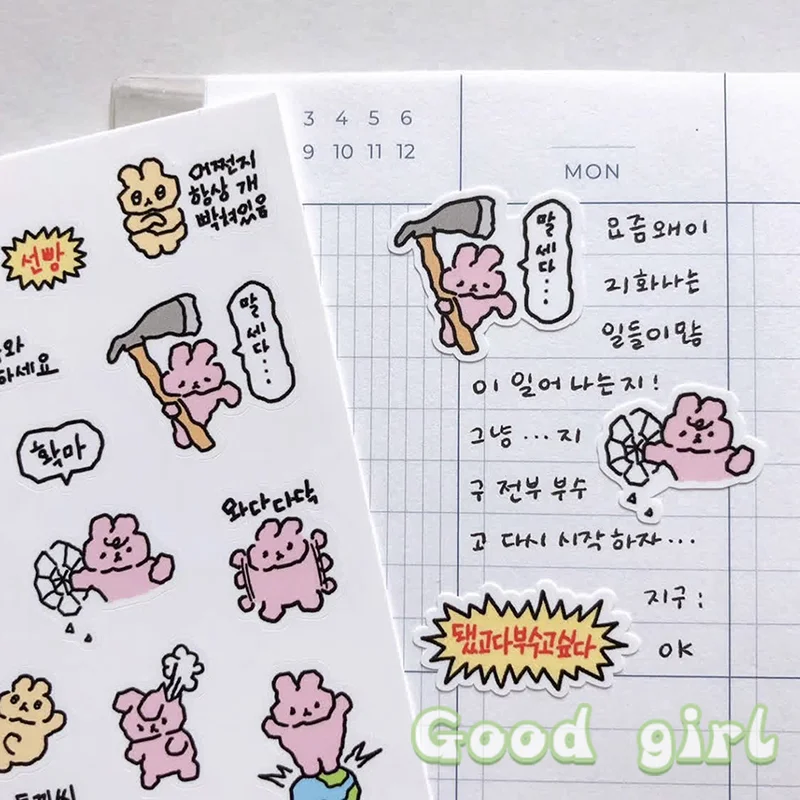 3 4 5 6
9 10 11 12
MON
어쩐지
항상 개
빡쳐있음
선빵
말
세
다
...
말
세
다
...
요즘 왜 이
리 화나는
일들이 많
이 일어나는지!
그냥 ... 지
구 전부 부수
고 다시 시작하자...
지구 :
OK
와
하세요
확마
와다다닥
됐고다부수고싶다
Good girl